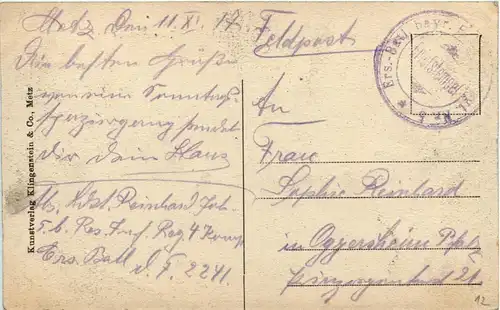 Metz Den 11. XI. 17
Die besten Grüße
von eim Sonntags
spaziergang sendet
Dir Dein Hans
Ldst. Reinhard Joh.
5. b. Res. Inf. Reg 4 Komp.
Ers. Batl. d. F. 2241.
Kunstverlag Klingenstein & Co., Metz
Feldpost
Ers.-Batl. bayr.
An
Frau
Sophie Reinhard
in Oggersheim Pfalz
12